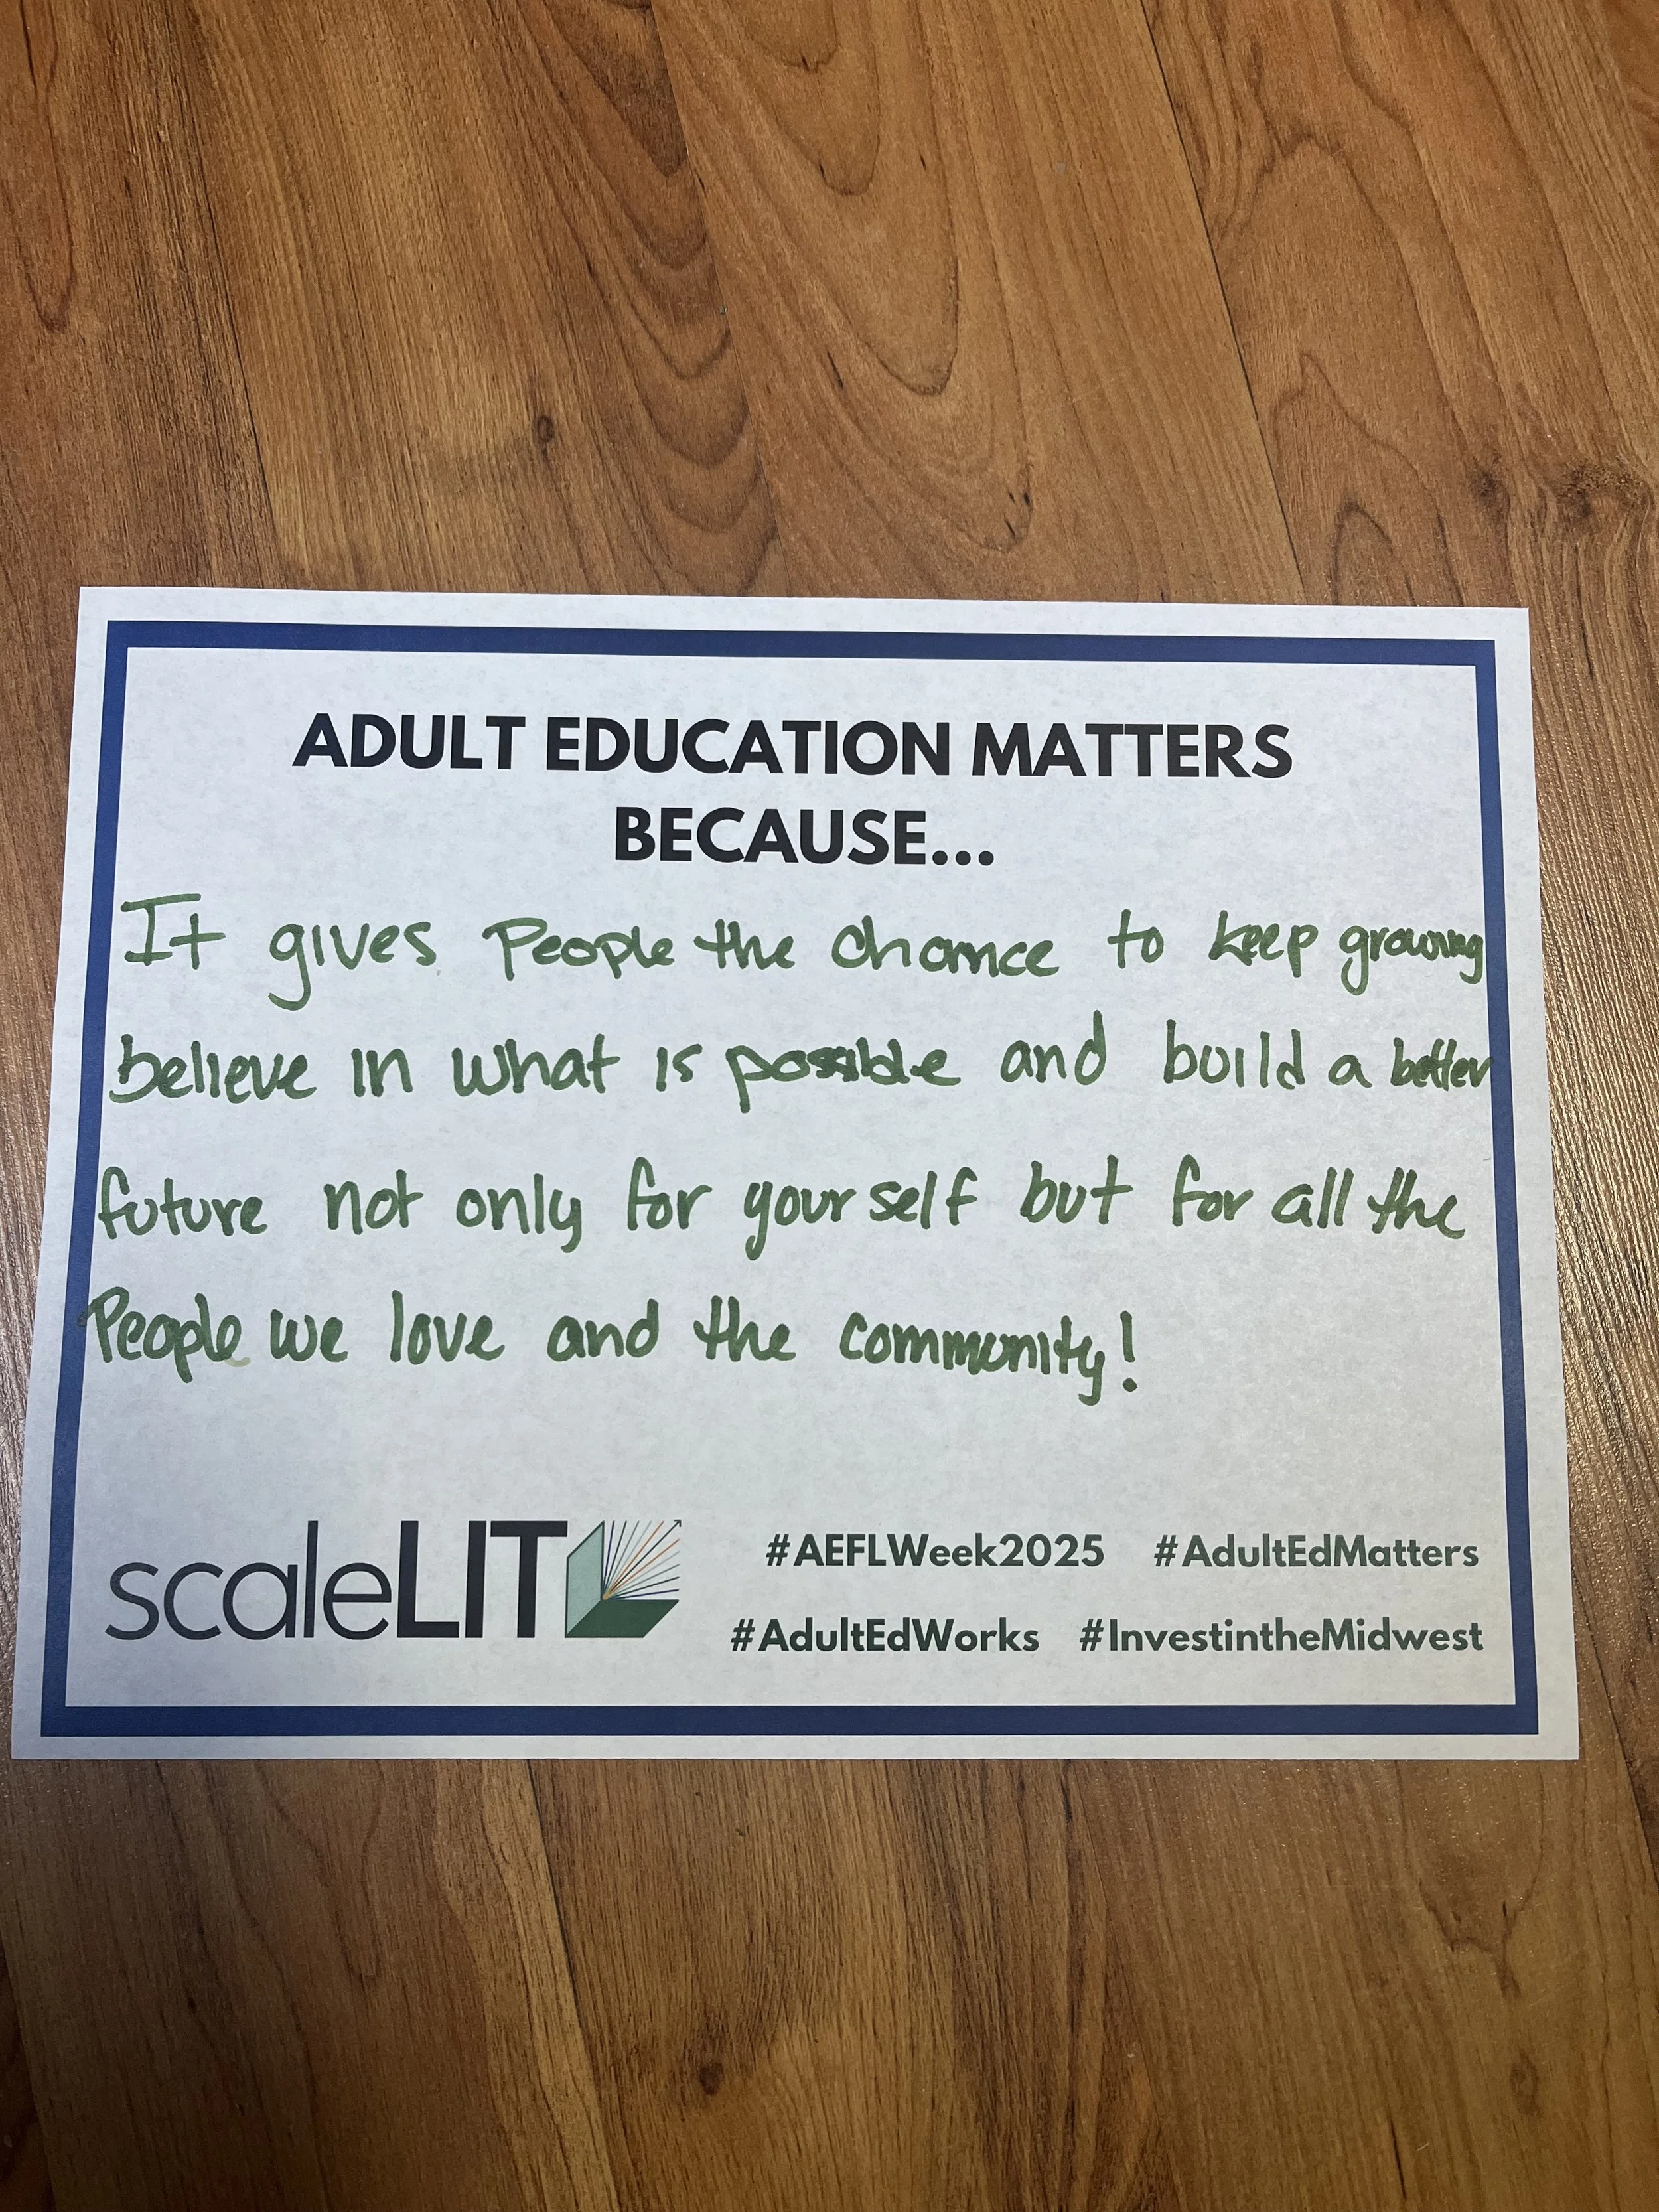 ADULT EDUCATION MATTERS
BECAUSE...
It gives People the chance to keep growing
believe in what is possible and build a better
future not only for yourself but for all the
People we love and the community!
scaleLIT
#AEFLWeek2025 #AdultEdMatters
#AdultEdWorks #InvestintheMidwest